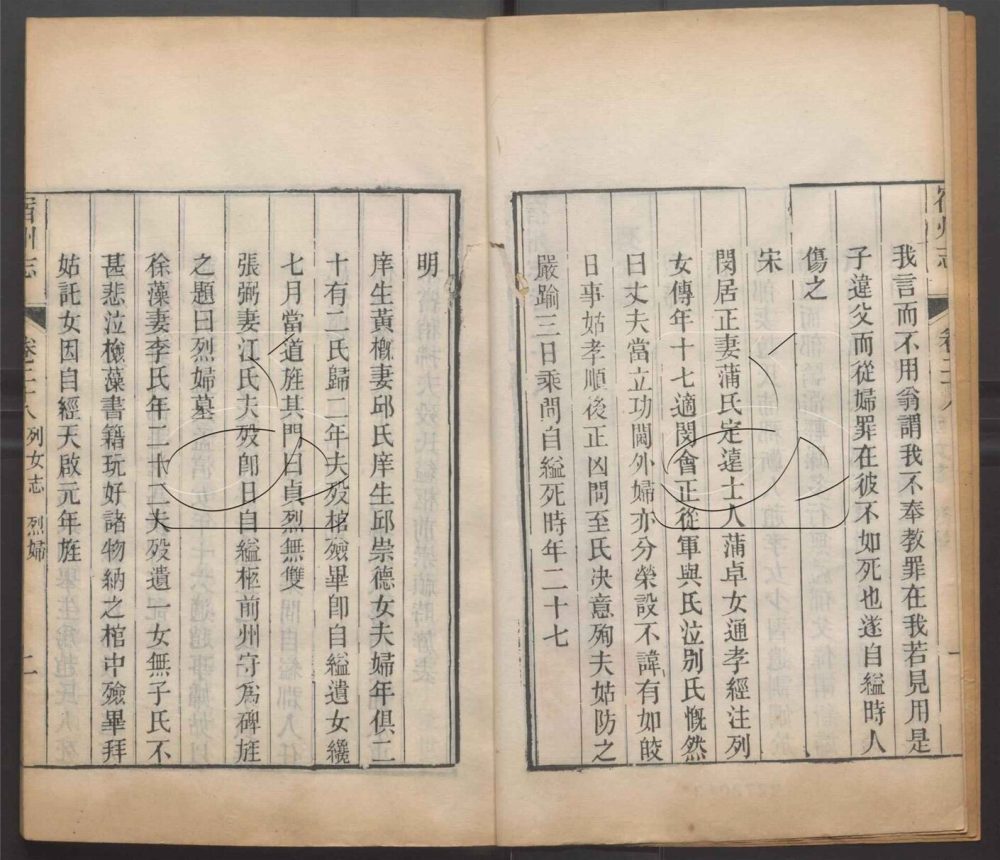 宿州志
卷二十八
一
我言而不用翁謂我不奉教罪在我若見用是
子違父而從婦罪在彼不如死也遂自縊時人
傷之
宋
閔居正妻蒲氏定遠士人蒲卓女通孝經注列
女傳年十七適閔會正從軍與氏泣別氏慨然
曰丈夫當立功閫外婦亦分榮設不諱有如皎
日事姑孝順後正凶問至氏決意殉夫姑防之
嚴踰三日乘間自縊死時年二十七
明
庠生黃概妻邱氏庠生邱崇德女夫婦年俱二
十有二氏歸二年夫歿棺殮畢卽自縊遺女纔
七月當道旌其門曰貞烈無雙
張弼妻江氏夫歿卽日自縊柩前州守爲碑旌
之題曰烈婦墓
徐藻妻李氏年二十夫歿遺一女無子氏不
甚悲泣檢藻書籍玩好諸物納之棺中殮畢拜
姑託女因自經天啟元年旌
宿州志
卷二十八
列女志 烈婦
二